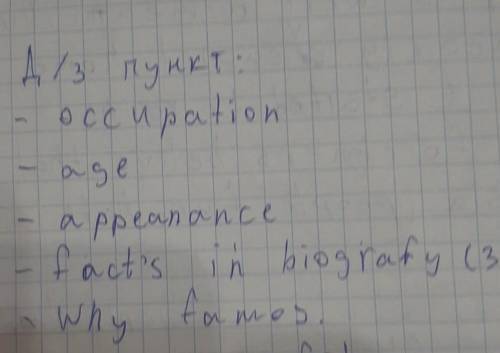 Д/з пункт:
- occupation
- age
- appeanance
- fact's in biografy (3
- Why famos.